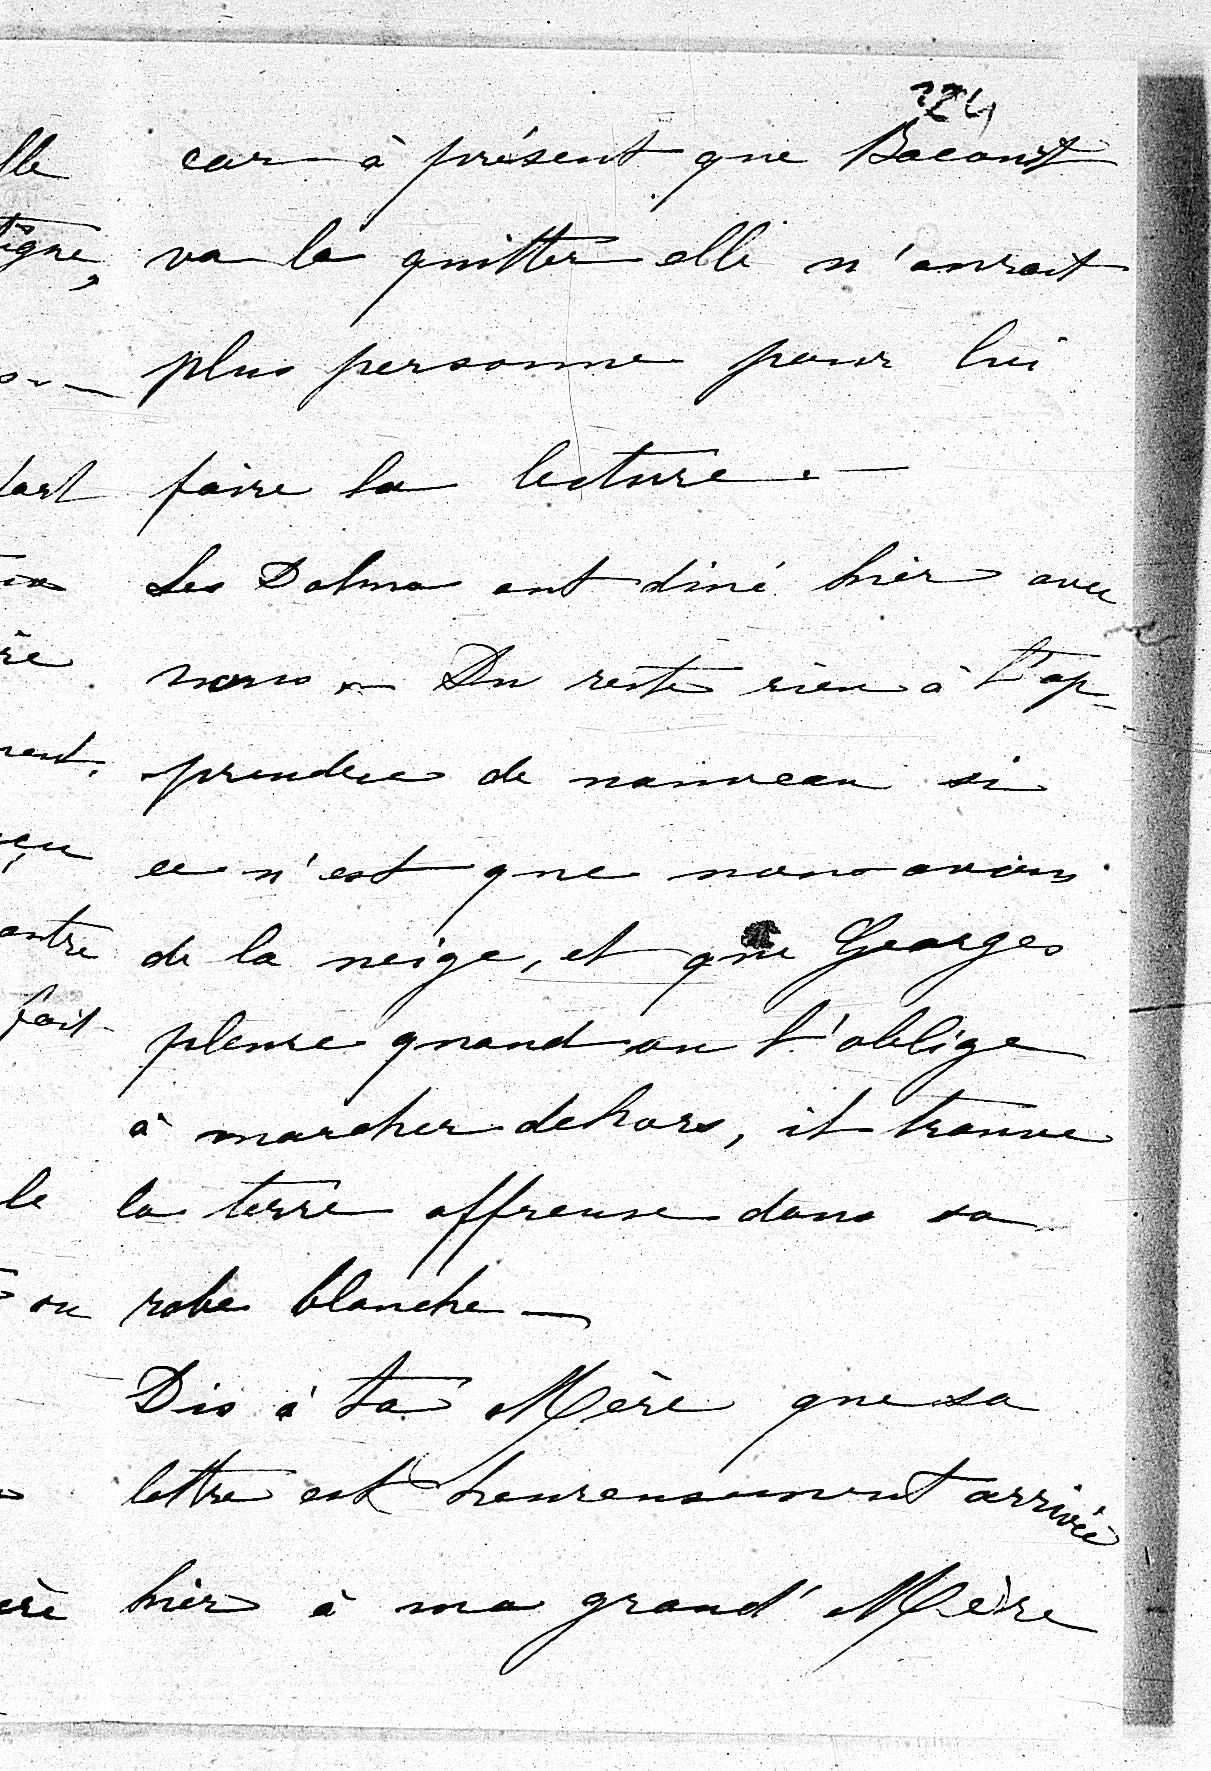 124
car à présent que Bacourt
va la quitter elle n'aurait
plus personne pour lui
faire la lecture. —
Les Dolma ont diné hier avec
nous. — Du reste rien à t'ap-
prendre de nouveau si
ce n'est que nous avions
de la neige, et que Georges
pleure quand on l'oblige
à marcher dehors, il trouve
la terre affreuse dans sa
robe blanche —
Dis à ta Mère que sa
lettre est heureusement arrivée
hier à ma grand' Mère